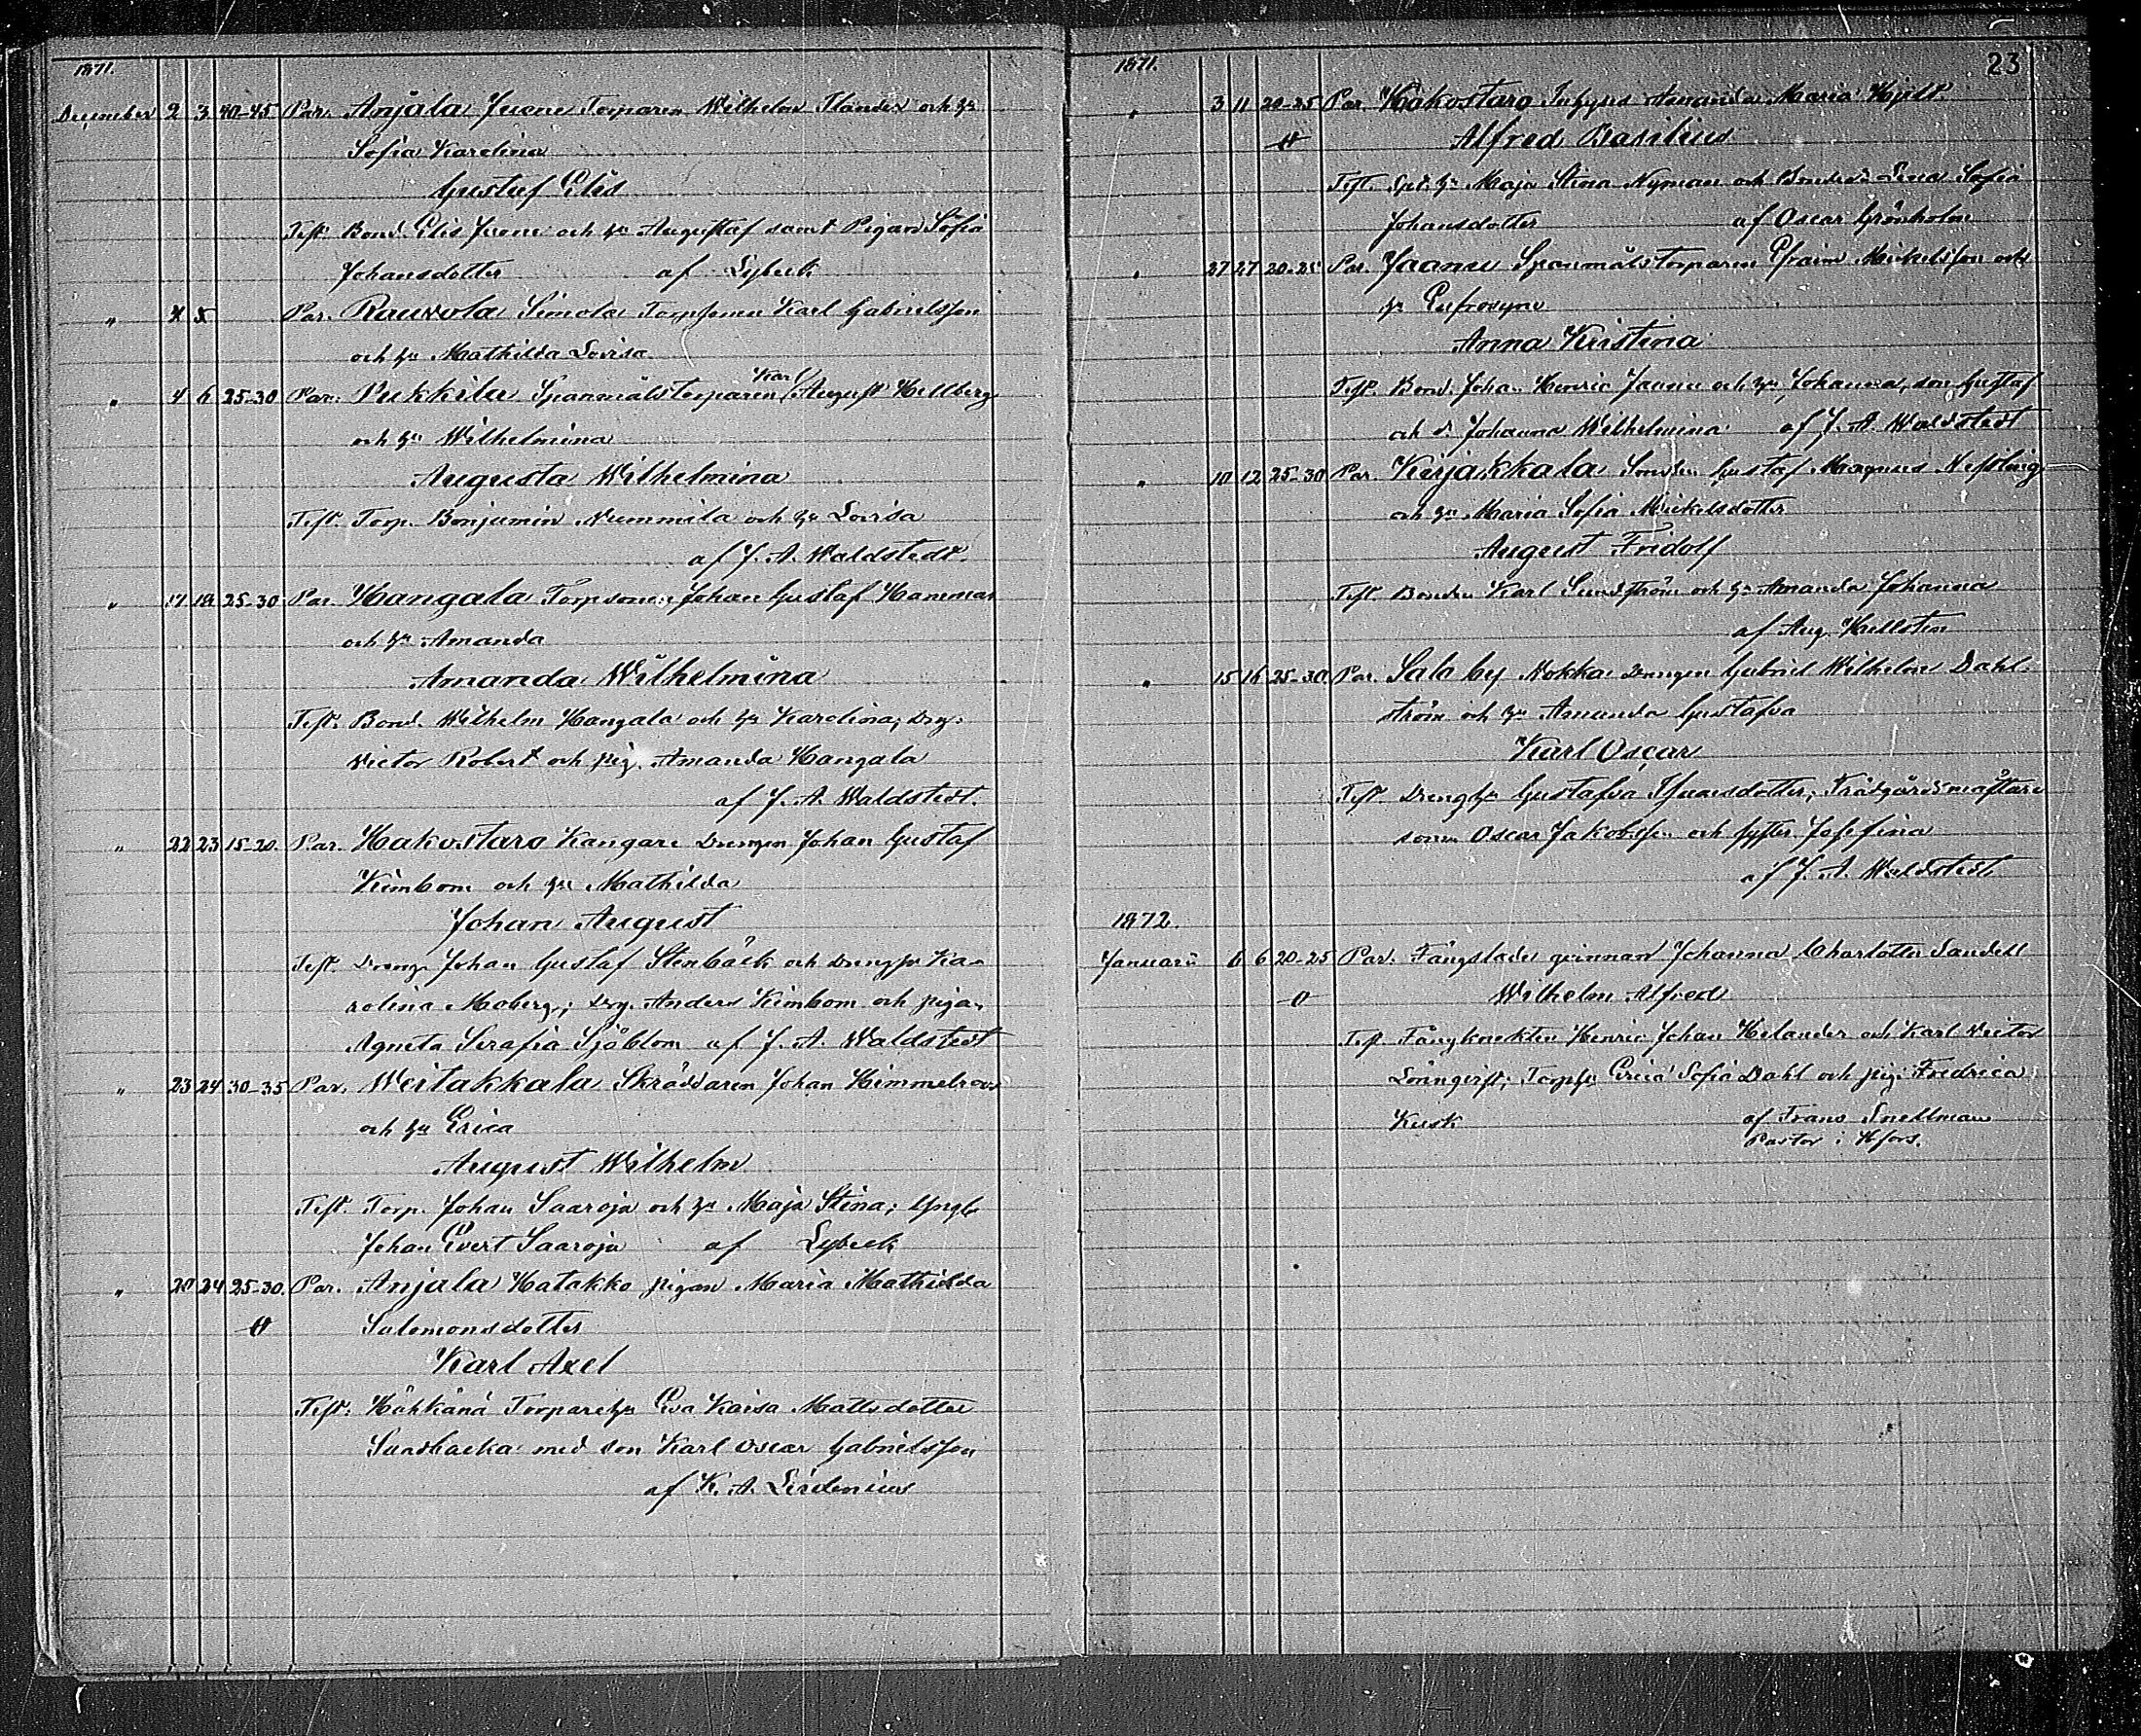 1871.
December 2 3 40-45 Par. Anjala Juene Torparen Wilhelm Tlander och hu
Sofia Karolina
Gustaf Elis
Test. Bond. Elis Juene och hu Augustaf samt Pigan Sofia
Johansdotter af Lybeck
" 4 5 Par. Rauvola Simola Torpsonen Karl Gabrielsson
och hu Mathilda Lovisa
" 4 6 25-30 Par. Pukkila Spanmålstorparen Karl August Hellberg
och hu Wilhelmina
Augusta Wilhelmina
Test. Torp. Benjamin Nummila och hu Lovisa
af J. A. Waldstedt.
" 17 18 25-30 Par. Hangala Torpsonen Johan Gustaf Hammar
och hu Amanda
Amanda Wilhelmina
Test. Bond. Wilhelm Hangala och hu Karolina; Drg.
Victor Robert och pig. Amanda Hangala
af J. A. Waldstedt.
" 22 23 15-20. Par. Hakostaro Kangari Drengen Johan Gustaf
Kimbom och hu Mathilda
Johan August
Test. Dreng. Johan Gustaf Stenbäck och Drenghu Ka-
rolina Moberg; Drg. Anders Kimbom och pigan
Agneta Serafia Sjöblom af J. A. Waldstedt
" 23 24 30-35 Par. Weitakkala Skräddaren Johan Himmelroos
och hu Erica
August Wilhelm
Test. Torp. Johan Saaroja och hu Maja Stina; Yngl.
Johan Evert Saaroja af Lybeck
" 20 24 25-30. Par. Anjala Hatakko pigan Maria Mathilda
Salomonsdotter
Karl Axel
Test. Hähkänä Torparehu Eva Kaisa Mattsdotter
Sundbacka med son Karl Oscar Gabrielsson
af K. A. Lirdenius
1871. 23
" 3 11 20-25 Par. Hakostaro Inhyses Amanda Maria Hjelt.
Alfred Basilius
Test. hu Maja Stina Nyman och Lena Sofia
Johansdotter af Oscar Grönholm
" 27 27 20-25 Par. Jaanu Spanmålstorparen Efraim Mickelsson och
hu Eufrosyne
Anna Kristina
Test. Bond. Johan Henric Jaanu och hu Johanna, son Gustaf
och d. Johanna Wilhelmina af J. A. Waldstedt
" 10 12 25-30 Par. Kirjakkala Gustaf Magnus Nessling
och hu Maria Sofia Mickelsdotter
August Fridolf
Test. Bonden Karl Sundström och hu Amanda Johanna
af Aug. Hellsten
" 15 16 25-30. Par. Salo by Nokka Drengen Gabriel Wilhelm Dahl-
ström och hu Amanda Gustafva
Karl Oscar
Test. Drenghu Gustafva Thomsdotter; Trädgårdsmästare
sonen Oscar Jakobsson och syster Josefina
af J. A. Waldstedt
1872.
Januari 6 6 20-25 Par. Fängslade qvinnan Johanna Charlotta Sandell
Wilhelm Alfred
Test. Fångknekten Henric Johan Helander och Karl Victor
Lönnqvist; Torphu Erica Sofia Dahl och pig. Fredrica
Kusk af Frans Snellman
Pastor i Hfors.